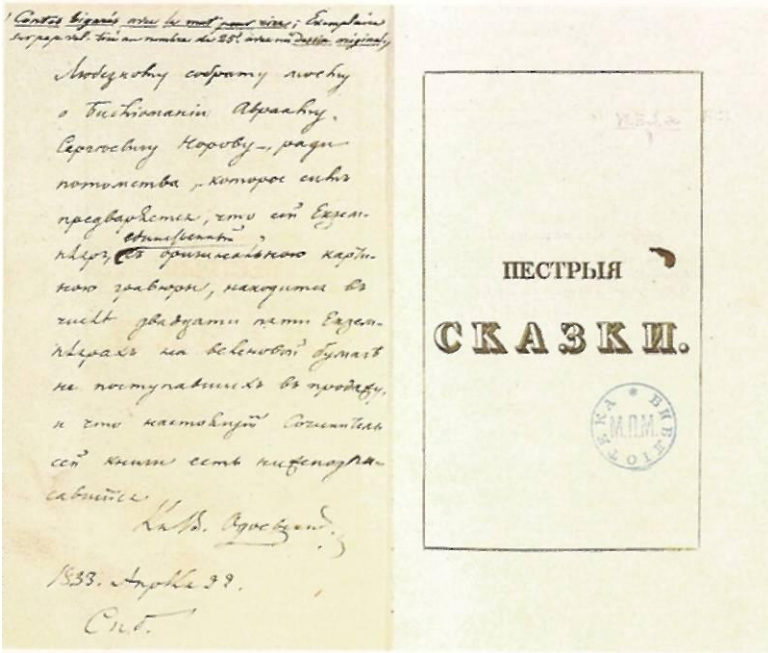 Contes bigarrés avec le mot pour rire; Exemplaire
sur pap. vel. tiré au nombre de 25. avec un dessin original
Любезному собрату моему
о Библіоманіи Аврааму
Сергѣевичу Норову—, ради
потомства, которое симъ
предваряется, что сей Екзем-
единственный
пляръ, съ оригинальною карти-
ною гравюры, находится въ
числѣ двадцати пяти Екзем-
плярахъ на веленовой бумагѣ
не поступавшихъ въ продажу,
и что настоящій Сочинитель
сей книги есть нижеподпи-
савшійся
Кн. В. Одоевский.
1833. Апрѣля 22.
Спб.
ПЕСТРЫЯ
СКАЗКИ.
БИБЛІОТЕКА
М.П.М.